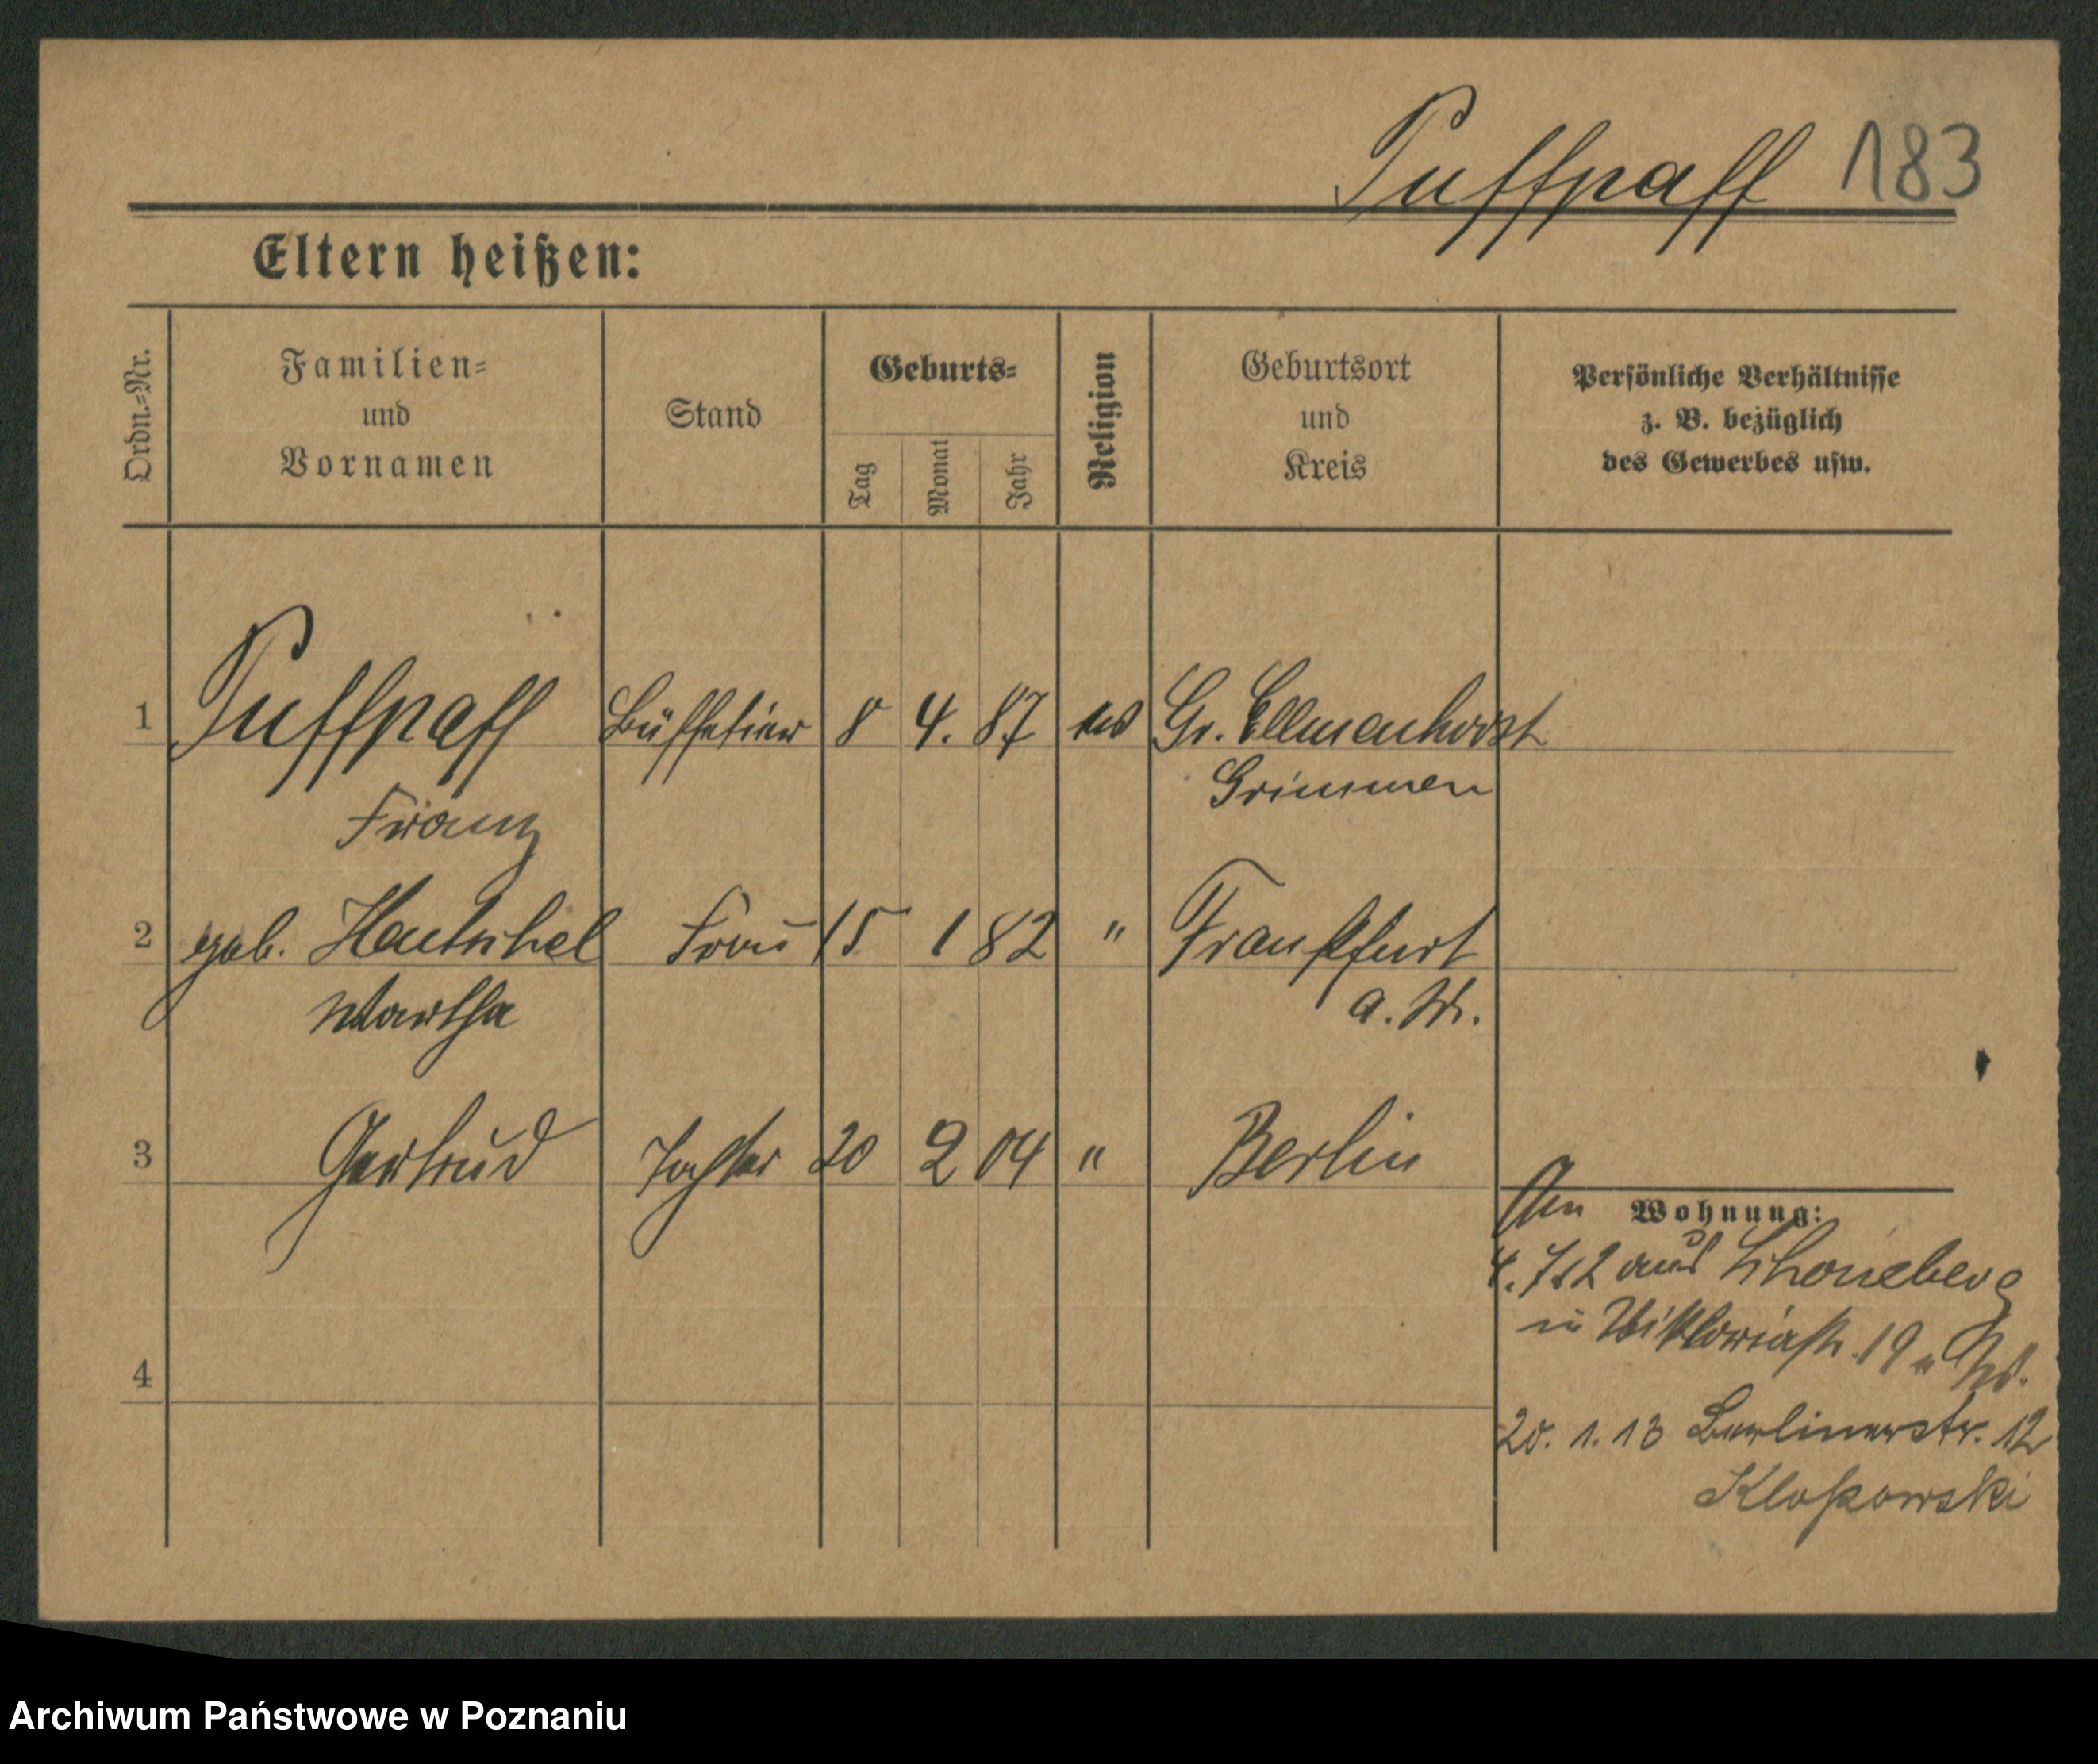 Puffpaff 183
Eltern heißen:
Ordn.=Nr. Familien= und Vornamen Stand Geburts= Tag Monat Jahr Religion Geburtsort und Kreis Persönliche Verhältnisse z. B. bezüglich des Gewerbes usw.
1 Puffpaff Büffetier 8 4. 87 Gr. Ellmenhorst
Franz Grimmen
2 geb. Hentschel Frau 15 1 82 " Frankfurt
Martha a. M.
3 Gertrud Tochter 20 2 04 " Berlin
Wohnung:
4. 7 12 aus Schöneberg
in Viktoriastr. 19
4
20. 1. 13 Berlinerstr. 12
Klopowski
Archiwum Państwowe w Poznaniu